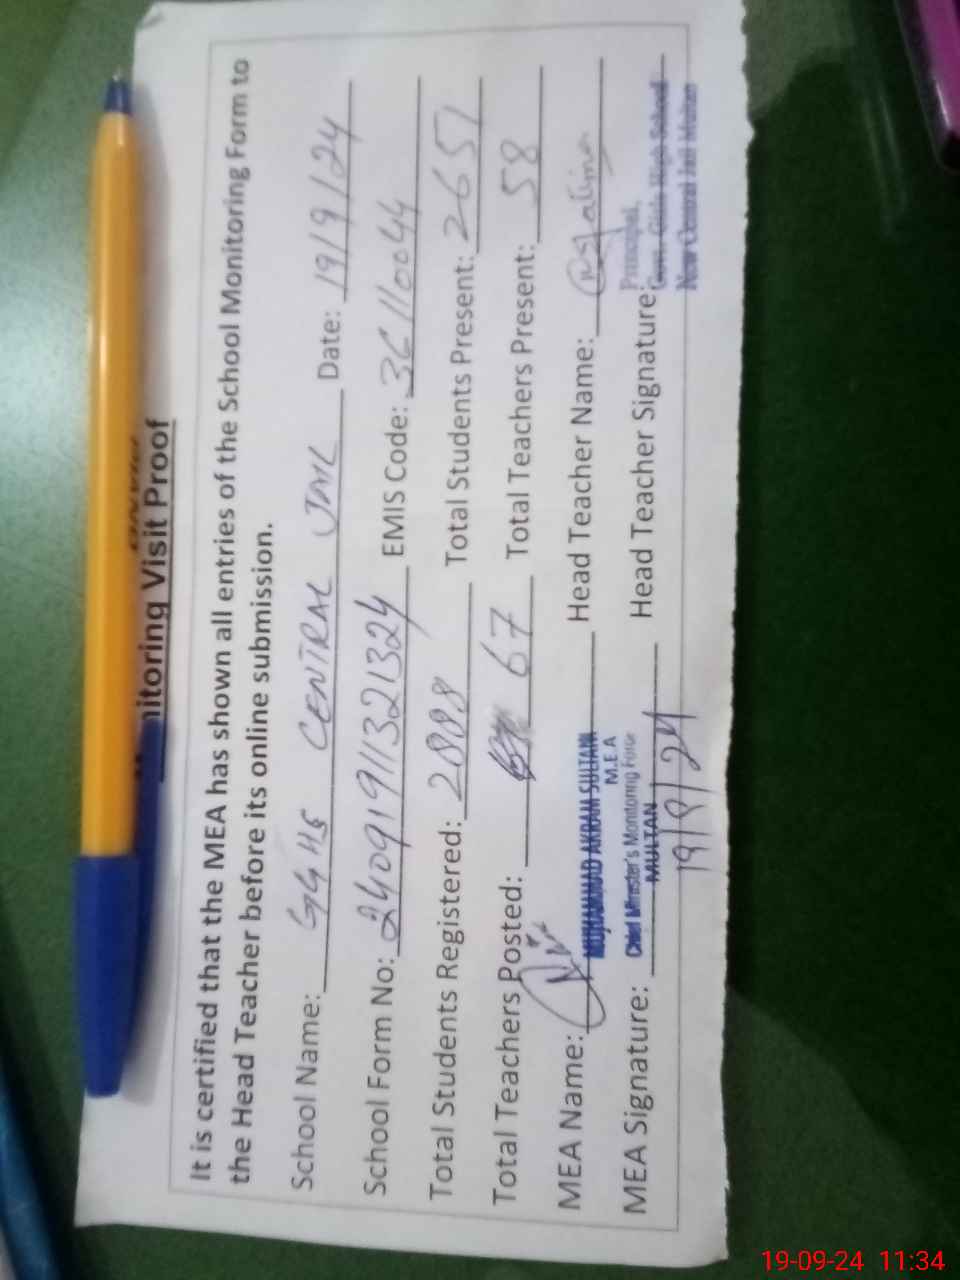 Monitoring Visit Proof
It is certified that the MEA has shown all entries of the School Monitoring Form to
the Head Teacher before its online submission.
School Name: GGHS CENTRAL JAIL Date: 19/9/24
School Form No: 24091911321324 EMIS Code: 36110044
Total Students Registered: 2888 Total Students Present: 2651
Total Teachers Posted: 67 Total Teachers Present: 58
MEA Name: Head Teacher Name:
MUHAMMAD AKRAM SULTANI
M.E.A
Chief Minister's Monitoring Force
MULTAN
MEA Signature: Head Teacher Signature:
19/9/24
Principal,
Govt. Girls High School
New Central Jail Multan
19-09-24 11:34